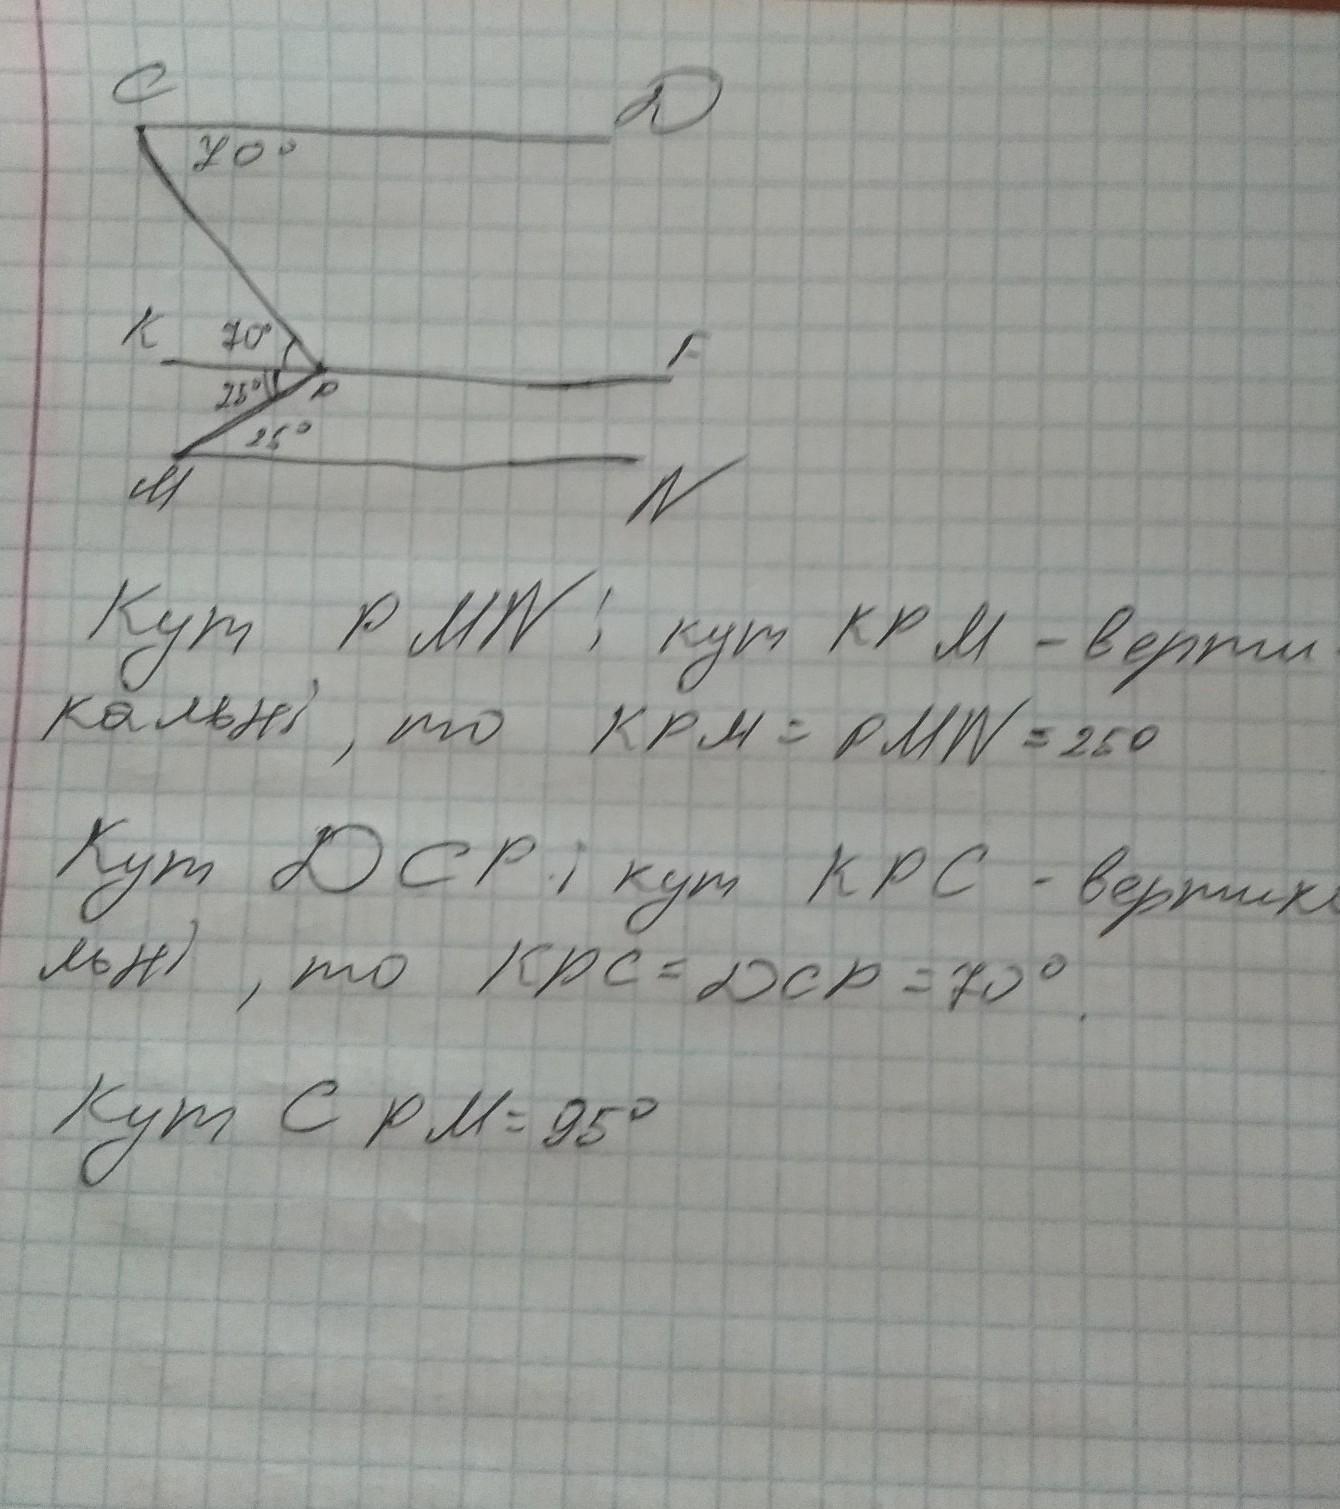 C D
70°
K 70° F
25° P
25°
M N
Кут PMN і кут KPM - верти
кальні, то KPM = PMN = 25°
Кут DCP і кут KPC - вертика
льні, то KPC = DCP = 70°.
Кут CPM = 95°